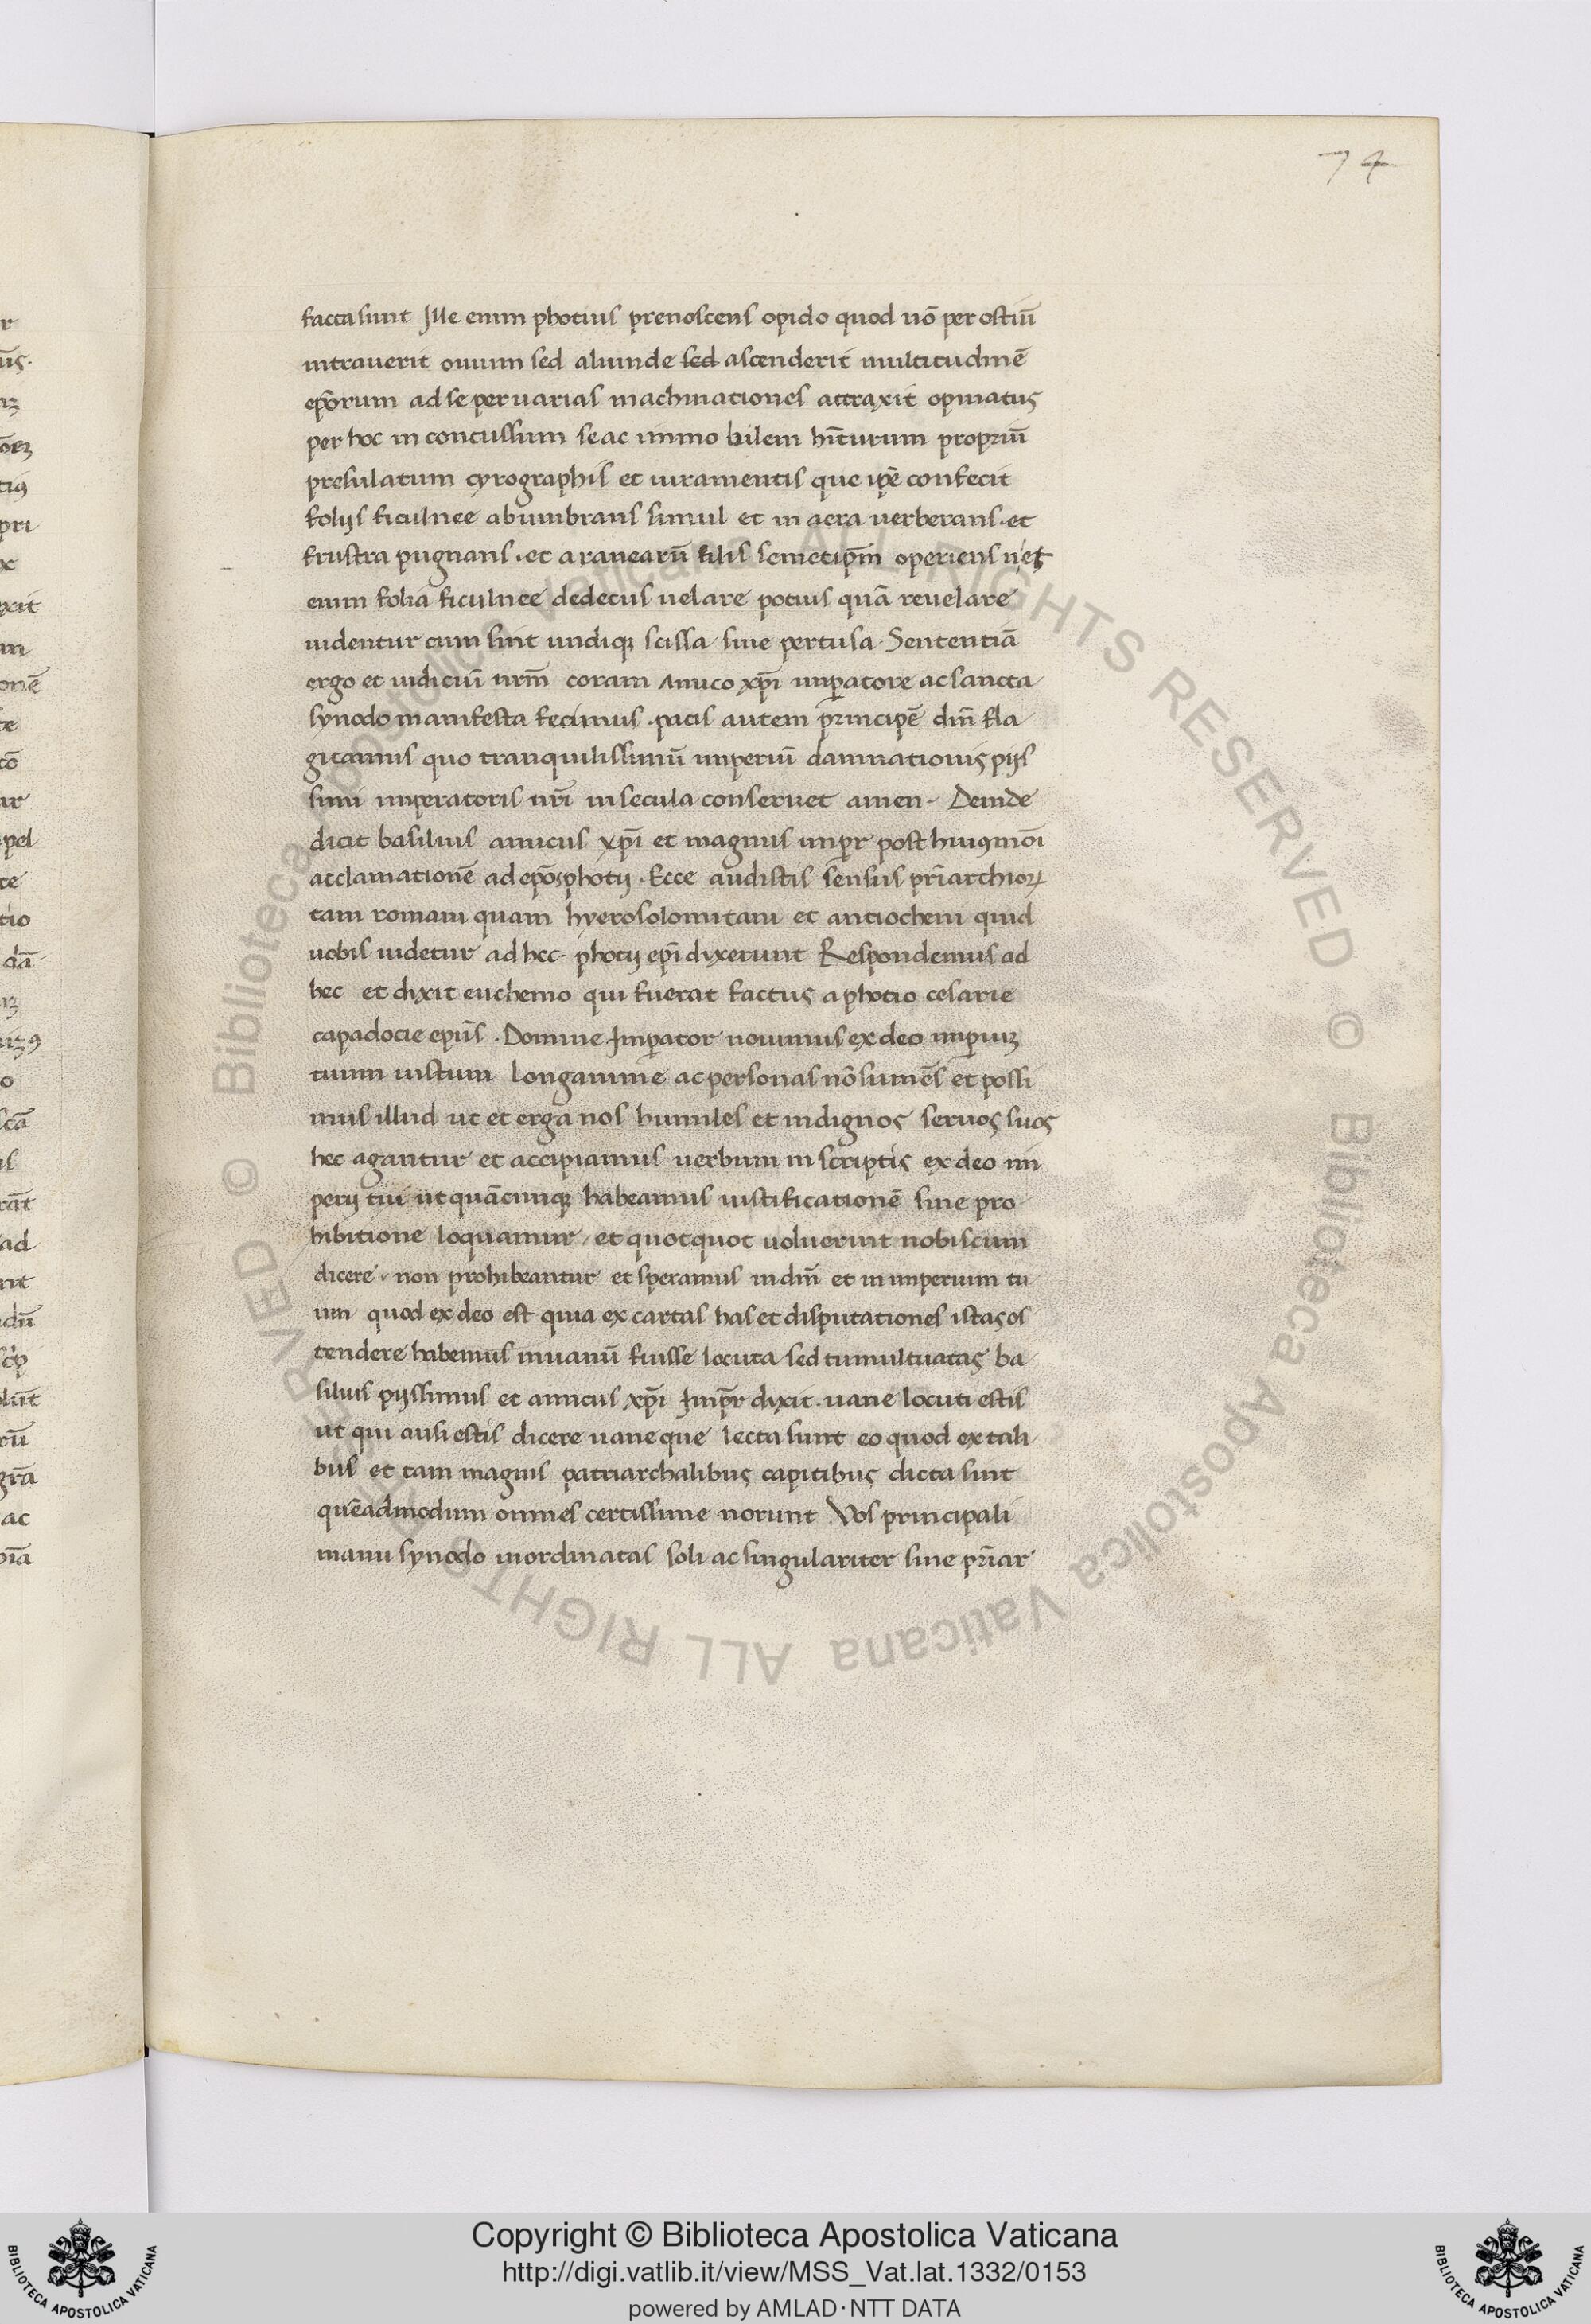 74
facta sunt Ille enim photius prenoscens opido quod nō per ostiū
intrauerit ouium sed aliunde sed ascenderit multitudinē
ep̄orum ad se per uarias machinationes attraxit opinatus
per hoc in concussum se ac immo bilem hīturum propriū
presulatum cyrographis et iuramentis que ip̄e confecit
folijs ficulnee abumbrans simul et in aera uerberans. et
frustra pugnans. et aranearū filis semetip̄m operiens
enim folia ficulnee dedecus uelare potius quā reuelare
uidentur cum sint undiqꝫ scissa siue pertusa. Sententiā
ergo et iudiciū nr̄m coram Amico xp̄i imꝑatore ac sancta
synodo manifesta fecimus. pacis autem principē dn̄ fla
gitamus quo tranquilissimū imperiū damnationis pijs
simi imperatoris nr̄i in secula conseruet amen. Deinde
dicit basilius amicus xp̄i et magnus imꝑr post huiꝯmōi
acclamationē ad ep̄os photij. Ecce audistis sensus pr̄iarchioꝝ
tam romani quam hyerosolomitani et antiocheni quid
uobis uidetur ad hec. photij ep̄i dixerunt Respondemus ad
hec et dixit euchemo qui fuerat factus a photio cesarie
capadocie epūs. Domine Imꝑator nouimus ex deo imꝑiuꝫ
tuum iustum longanime ac personas nō sumēs et possi
mus illud ut et erga nos humiles et indignos seruos suos
hec agantur et accipiamus uerbum in scriptis ex deo im
perij tui ut quācunqꝫ habeamus iustificationē sine pro
hibitione loquamur, et quotquot uoluerint nobiscum
dicere. non prohibeantur et speramus in dn̄ et in imperium tu
um quod ex deo est quia ex cartas has et disputationes istas os
tendere habemus inuanū fuisse locuta sed tumultuatas ba
silius pijssimus et amicus xp̄i Imp̄r dixit. uane locuti estis
ut qui ausi estis dicere uane que lecta sunt eo quod ex tali
bus et tam magnis patriarchalibus capitibus dicta sint
quēadmodum omnes certissime norunt Vos principali
manu synodo inordinatas soli ac singulariter sine pr̄iar
© Biblioteca Apostolica Vaticana ALL RIGHTS RESERVED © Biblioteca Apostolica Vaticana ALL RIGHTS RESERVED
Copyright © Biblioteca Apostolica Vaticana
http://digi.vatlib.it/view/MSS_Vat.lat.1332/0153
powered by AMLAD·NTT DATA
BIBLIOTECA APOSTOLICA VATICANA
BIBLIOTECA APOSTOLICA VATICANA